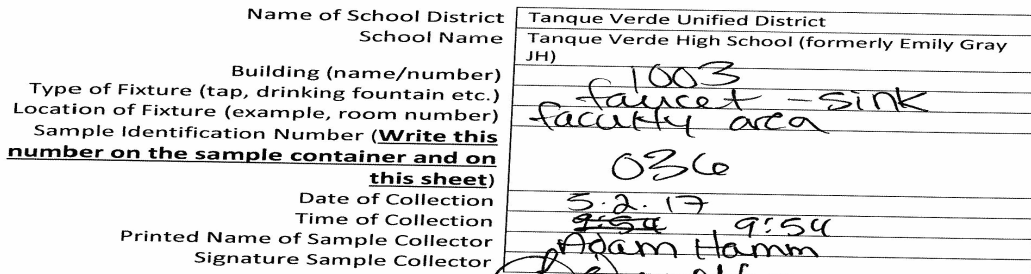 Name of School District Tanque Verde Unified District
School Name Tanque Verde High School (formerly Emily Gray
JH)
Building (name/number) 1003
Type of Fixture (tap, drinking fountain etc.) faucet - sink
Location of Fixture (example, room number) faculty area
Sample Identification Number (Write this
number on the sample container and on
this sheet) 036
Date of Collection 5.2.17
Time of Collection 9:54 9:54
Printed Name of Sample Collector Adam Hamm
Signature Sample Collector